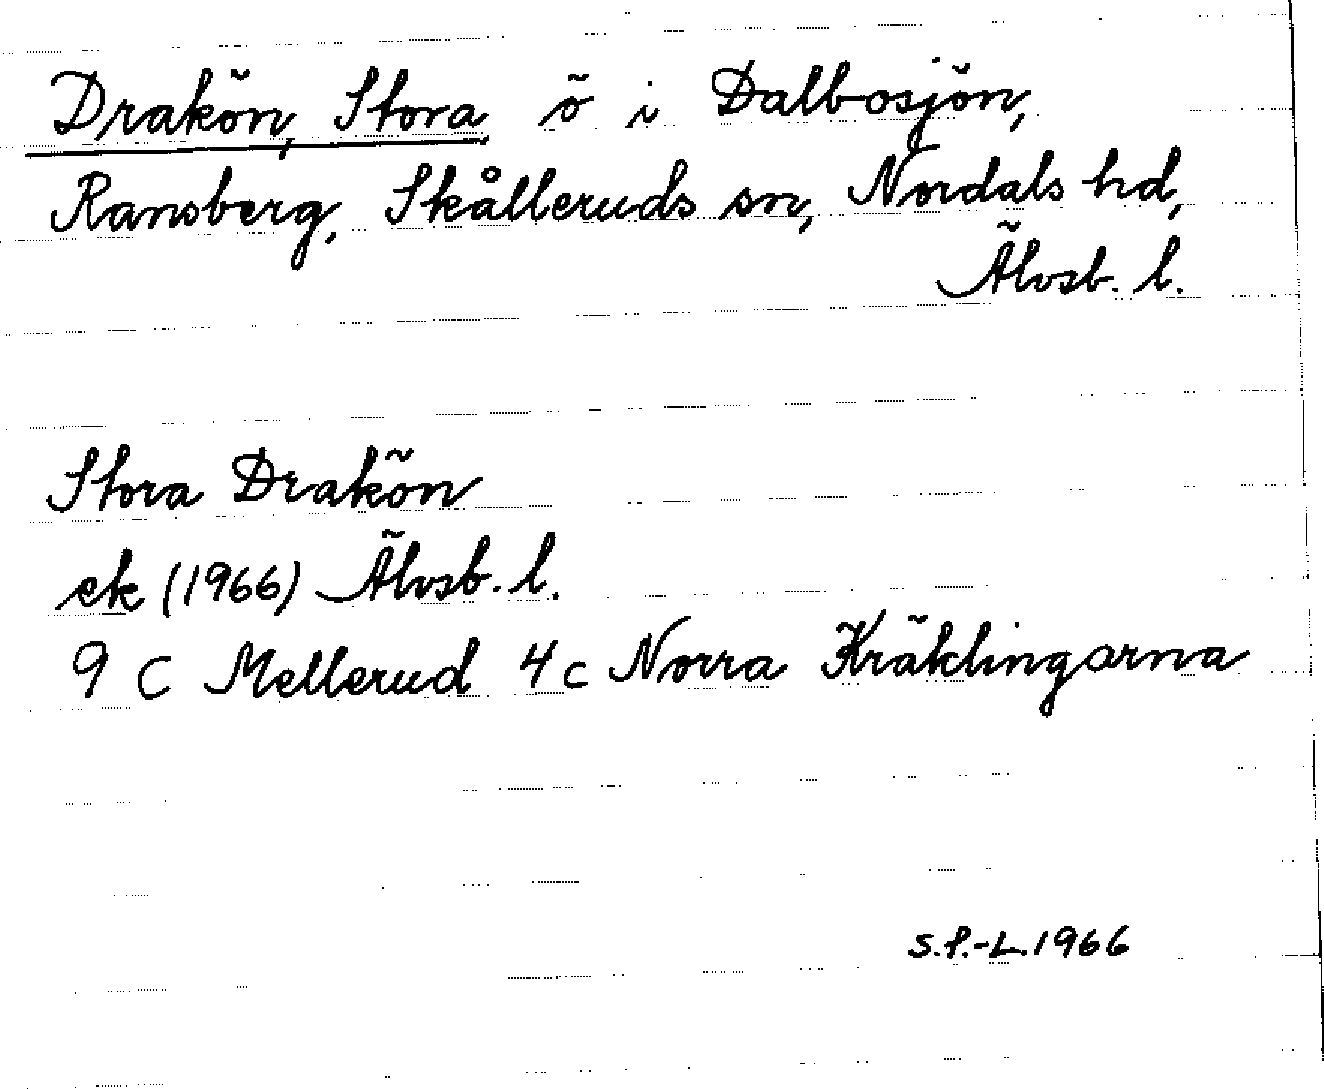 Drakön, Stora, ö i Dalbosjön,
Ransberg, Skålleruds sn, Nordals hd,
Älvsb. l.
Stora Drakön
ek (1966) Älvsb. l.
9 C Mellerud 4c Norra Kräklingarna
S.P.-L. 1966